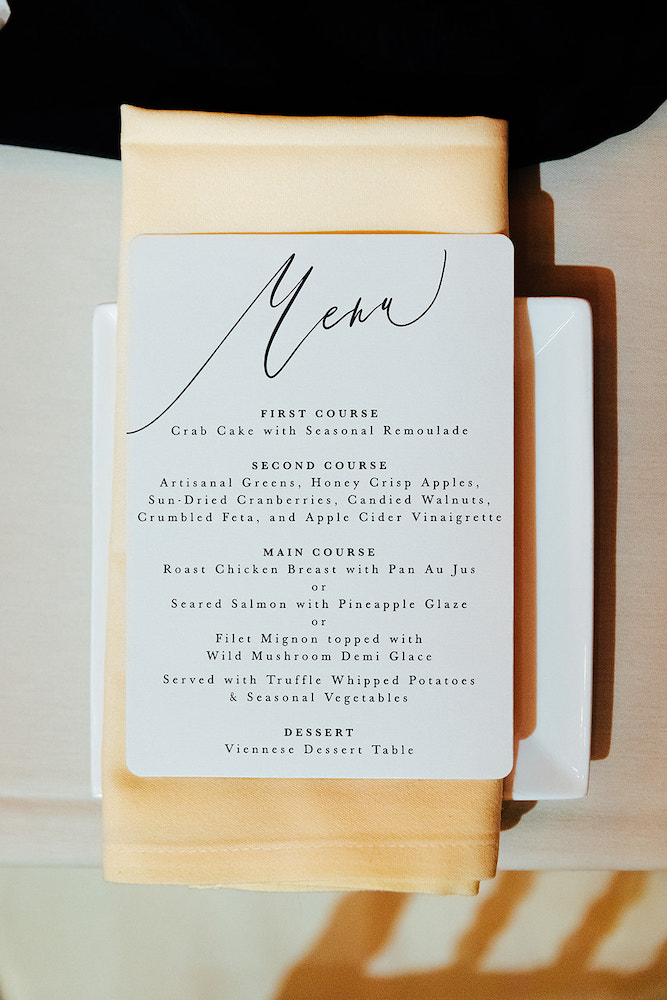 Menu
FIRST COURSE
Crab Cake with Seasonal Remoulade
SECOND COURSE
Artisanal Greens, Honey Crisp Apples,
Sun-Dried Cranberries, Candied Walnuts,
Crumbled Feta, and Apple Cider Vinaigrette
MAIN COURSE
Roast Chicken Breast with Pan Au Jus
or
Seared Salmon with Pineapple Glaze
or
Filet Mignon topped with
Wild Mushroom Demi Glace
Served with Truffle Whipped Potatoes
& Seasonal Vegetables
DESSERT
Viennese Dessert Table